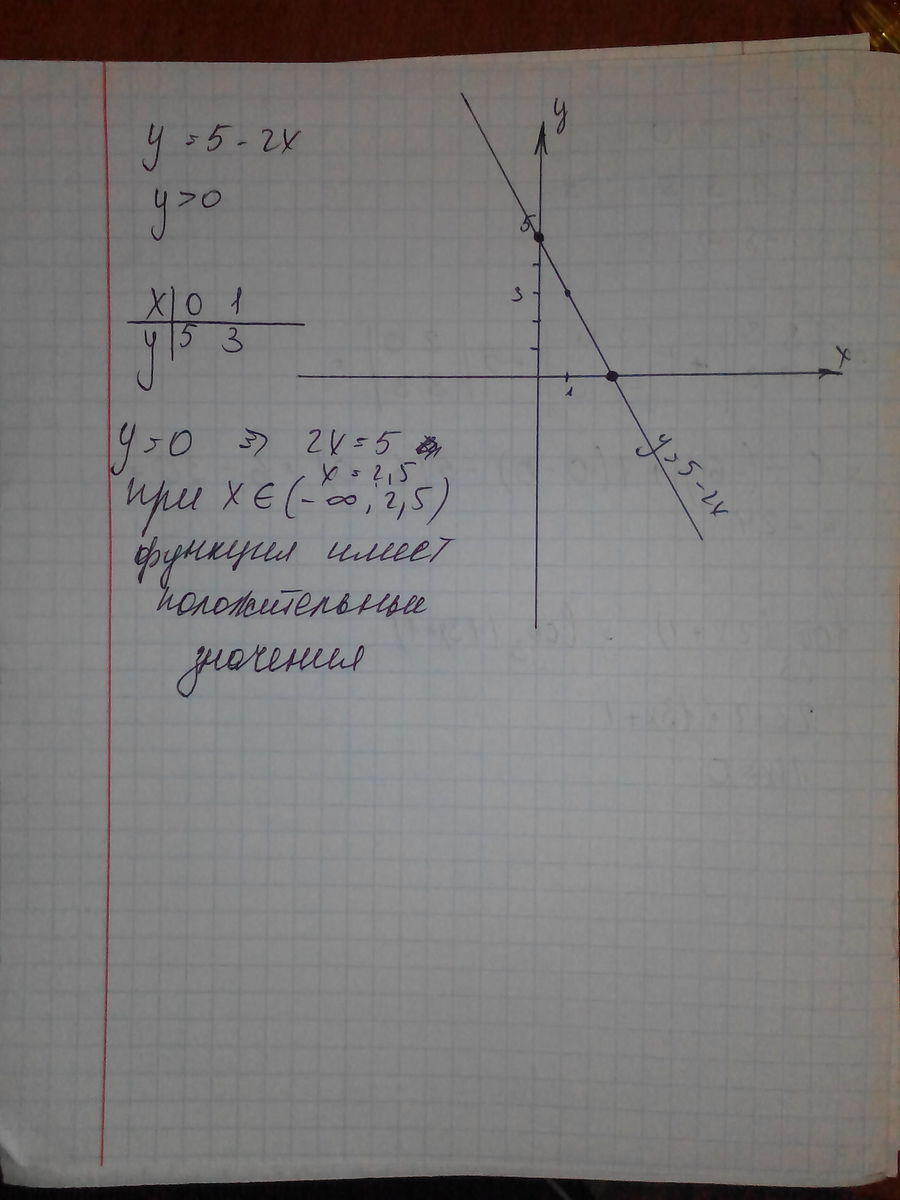 y = 5 - 2x
y > 0
x | 0 1
y | 5 3
y = 0 => 2x = 5
x = 2,5
при x ∈ (-∞; 2,5)
функция имеет
положительные
значения
y
5
3
1
x
y = 5 - 2x